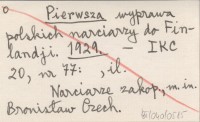 Pierwsza wyprawa
polskich narciarzy do Fin-
landji. 1929. — IKC
20, nr 77: , il.
Narciarze zakop., m.in.
Bronisław Czech.